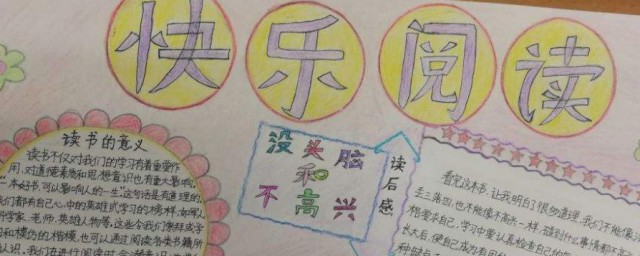 快乐阅读
读书的意义
读书不仅对我们的学习有着重要作
用,对道德素质和思想意识也有重大影响,
"一本好书,可以影响人的一生"这句话是有道理的
我们都有自己心中的英雄或学习的榜样,如军人
科学家、老师、英雄人物等,这些令我们崇拜或学
习和模仿的楷模,也可以通过阅读各类书籍所
没头脑
和
不高兴
读后感
看完这本书,让我明白了很多的道理,我们不能像没
丢三落四,也不能像不高兴一样,碰到什么事情都不
格要求自己,学习中要认真检查自己的
长大后,使自己成为有